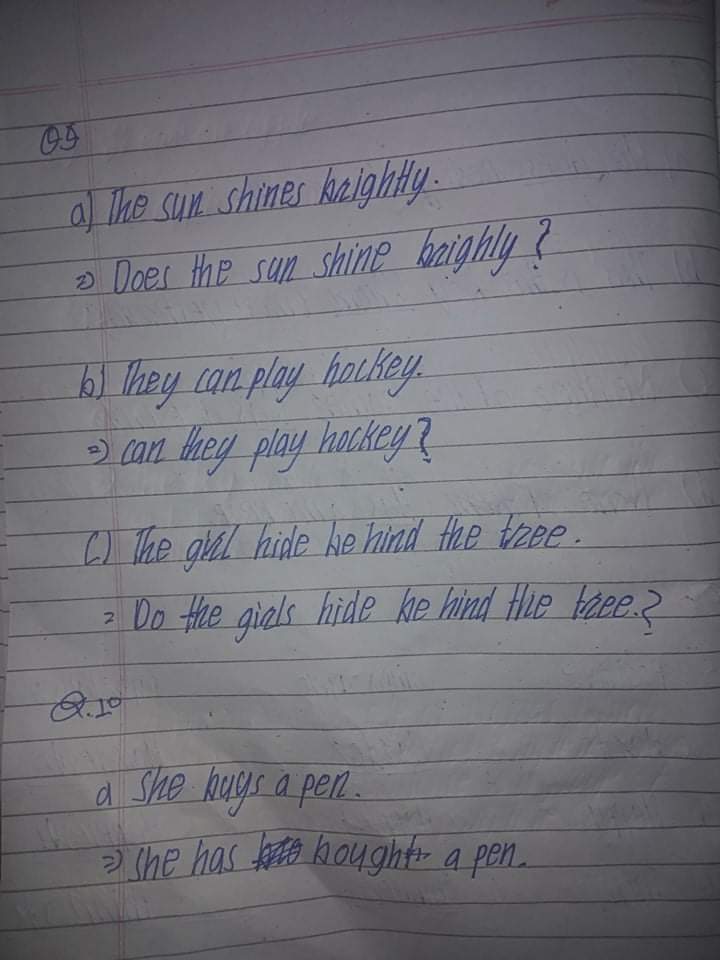 Q9
a) The sun shines brightly.
=) Does the sun shine brighly?
b) They can play hockey.
=) can they play hockey?
C) The girl hide be hind the tree.
= Do the girls hide be hind the tree.?
Q.10
a She buys a pen.
=) She has bought a pen.